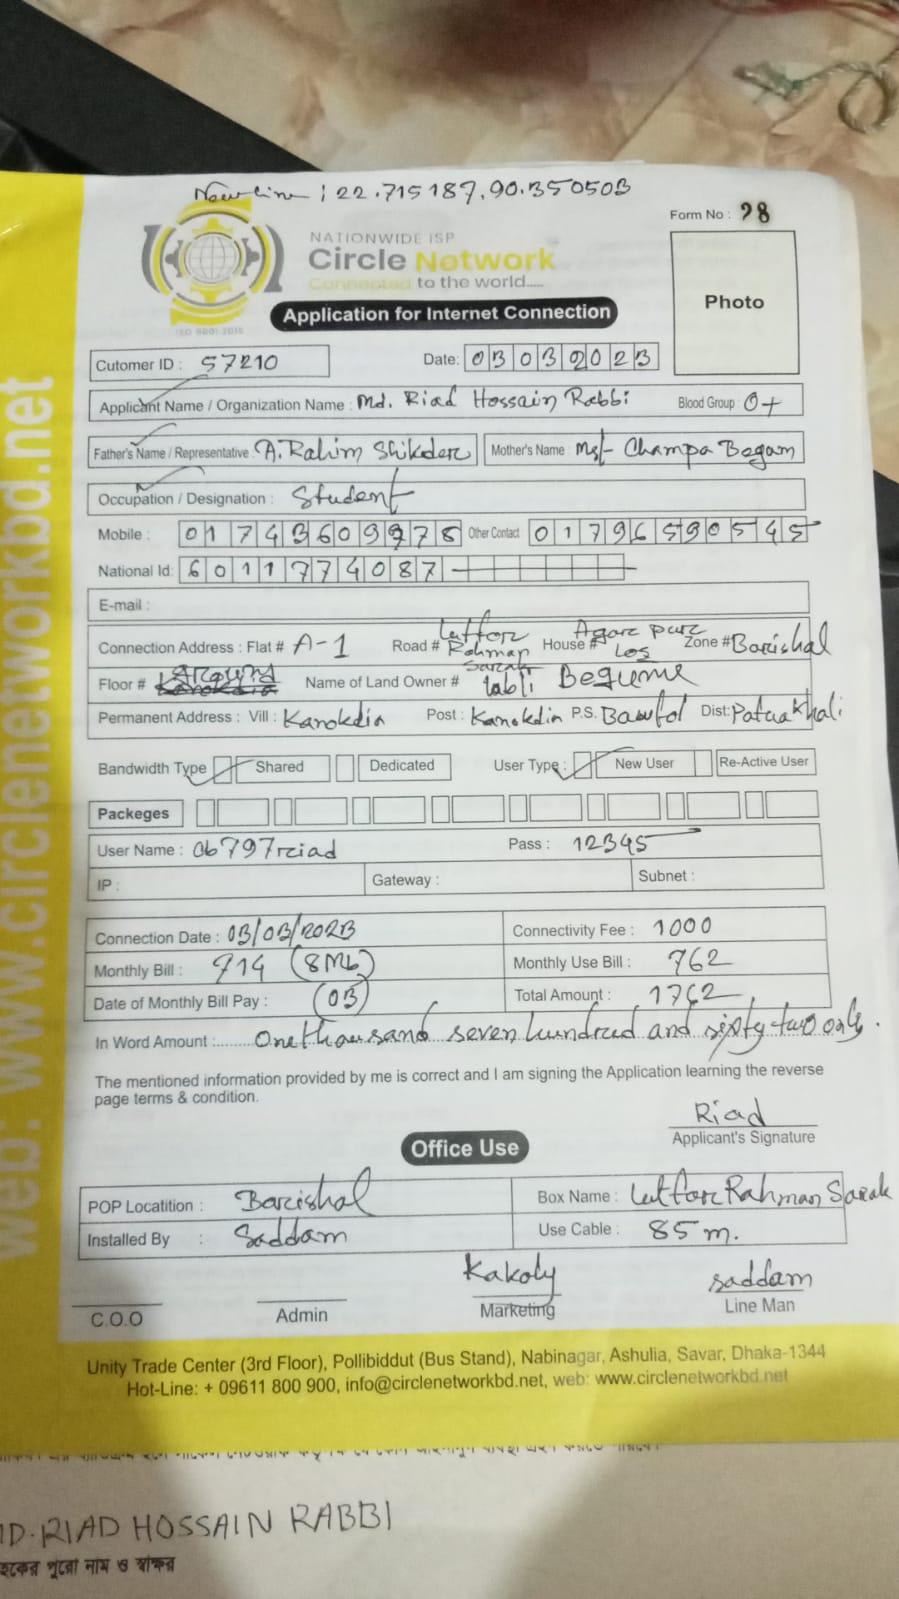 New line ; 22.715187,90.350503
Form No : 28
NATIONWIDE ISP
Circle Network
Connected to the world.....
ISO 9001:2015
Photo
Application for Internet Connection
Cutomer ID : 57210 Date: 03032023
Applicant Name / Organization Name : Md. Riad Hossain Rabbi Blood Group : O+
Father's Name / Representative : A. Rahim Shikder Mother's Name : Mst Champa Begam
Occupation / Designation : Student
Mobile : 01743609978 Other Contact 01796590545
National Id: 6011774087
E-mail :
Connection Address : Flat # A-1 Road # Lutfor Rahman Sarak House # Zone # Barishal
Floor # Ground Name of Land Owner # Labli Begume
Permanent Address : Vill : Kanokdia Post : Kanokdia P.S. Baufol Dist: Patuakhali
Bandwidth Type Shared Dedicated User Type : New User Re-Active User
Packeges
User Name : cb797riad Pass : 12345
IP : Gateway : Subnet :
Connection Date : 03/03/2023 Connectivity Fee : 1000
Monthly Bill : 714 (8Mb) Monthly Use Bill : 762
Date of Monthly Bill Pay : (03) Total Amount : 1762
In Word Amount :........ One thousand seven hundred and sixty two only.
The mentioned information provided by me is correct and I am signing the Application learning the reverse
page terms & condition.
Riad
Applicant's Signature
Office Use
POP Locatition : Barishal Box Name : Lutfor Rahman Sarak
Installed By : Saddam Use Cable : 85 m.
Kakoly saddam
C.O.O Admin Marketing Line Man
Unity Trade Center (3rd Floor), Pollibiddut (Bus Stand), Nabinagar, Ashulia, Savar, Dhaka-1344
Hot-Line: + 09611 800 900, info@circlenetworkbd.net, web: www.circlenetworkbd.net
web: www.circlenetworkbd.net
D. RIAD HOSSAIN RABBI
পুরো নাম ও স্বাক্ষর